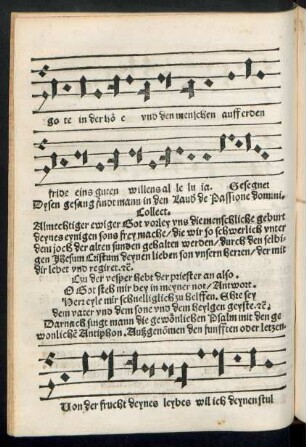 go te in der hö e vnd den menschen auff erden
fride eins guten willens al le lu ia. Gesegnet
Dysen gesang findt mann in den Laud̄ de Passione domini.
Collect.
Almechtiger ewiger Got vorley vns die menschliche geburt
deynes eynigen sons frey mache / die wir so schwerlich vnter
dem joch der alten sunden gehalten werden / durch den selbi-
gen Jhesum Cristum deynen lieben son vnsern herren / der mit
dir lebet vnd regiret. ꝛc̄.
Czu der vesper hebt der priester an also.
O Got steh mir bey in meyner not / Antwort.
Herr eyle mir schnelliglich zu helffen. Ehre sey
dem vater vnd dem sone vnd dem heylgen geyste. ꝛc̄
Darnach singt mann die gewönlichen Psalm mit den ge-
wonlichē Antiphon. Außgenōmen den funfften oder letzen.
Von der frucht deynes leybes wil ich deynen stul